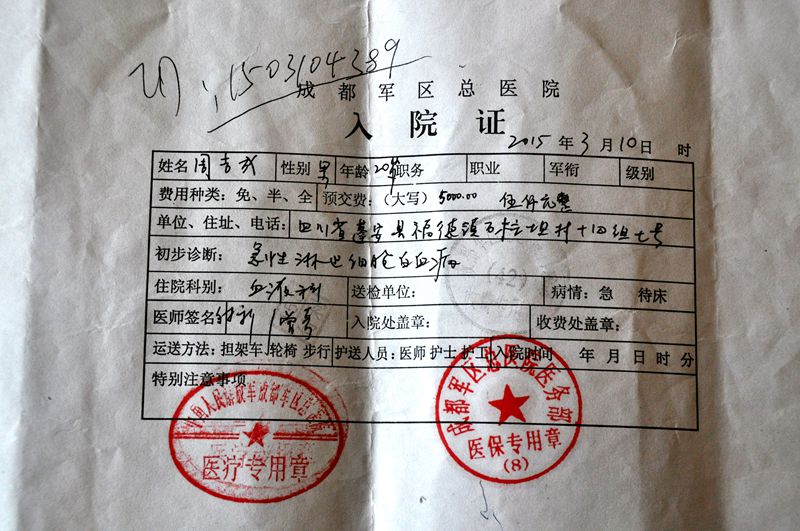 1503104389
成都军区总医院
入院证
2015年3月10日 时
姓名 周 性别 男 年龄 20岁 职务 职业 军衔 级别
费用种类：免、半、全 预交费：（大写）5000.00 伍仟元整
单位、住址、电话： 四川省蓬安县福德镇 村十四组七号
初步诊断： 急性淋巴细胞白血病
住院科别： 血液科 送检单位： 病情：急 待床
医师签名 入院处盖章： 收费处盖章：
运送方法：担架车、轮椅 步行 护送人员：医师 护士 护工 入院时间 年 月 日 时 分
特别注意事项
中国人民解放军成都军区总医院
医疗专用章
成都军区总医院医务部
医保专用章
(8)